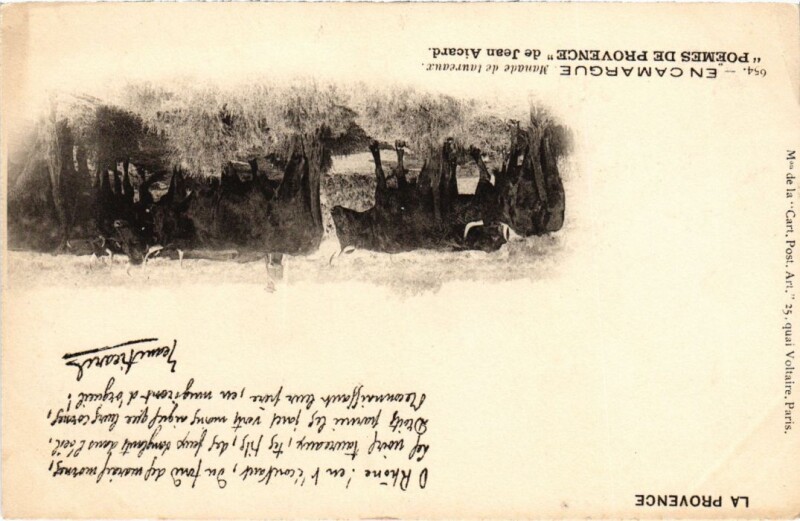 LA PROVENCE
O Rhône ! en t'écoutant, du fond des marais mornes,
Les noirs taureaux, tes fils, des feux sanglants dans l'œil,
Droits parmi les joncs verts moins aigus que leurs cornes,
Reconnaissant leur père, en mugiront d'orgueil !
Jean Aicard
654. — EN CAMARGUE. Manade de taureaux.
“POEMES DE PROVENCE” de Jean Aicard.
Mon de la “Cart. Post. Art.” 25, quai Voltaire, Paris.